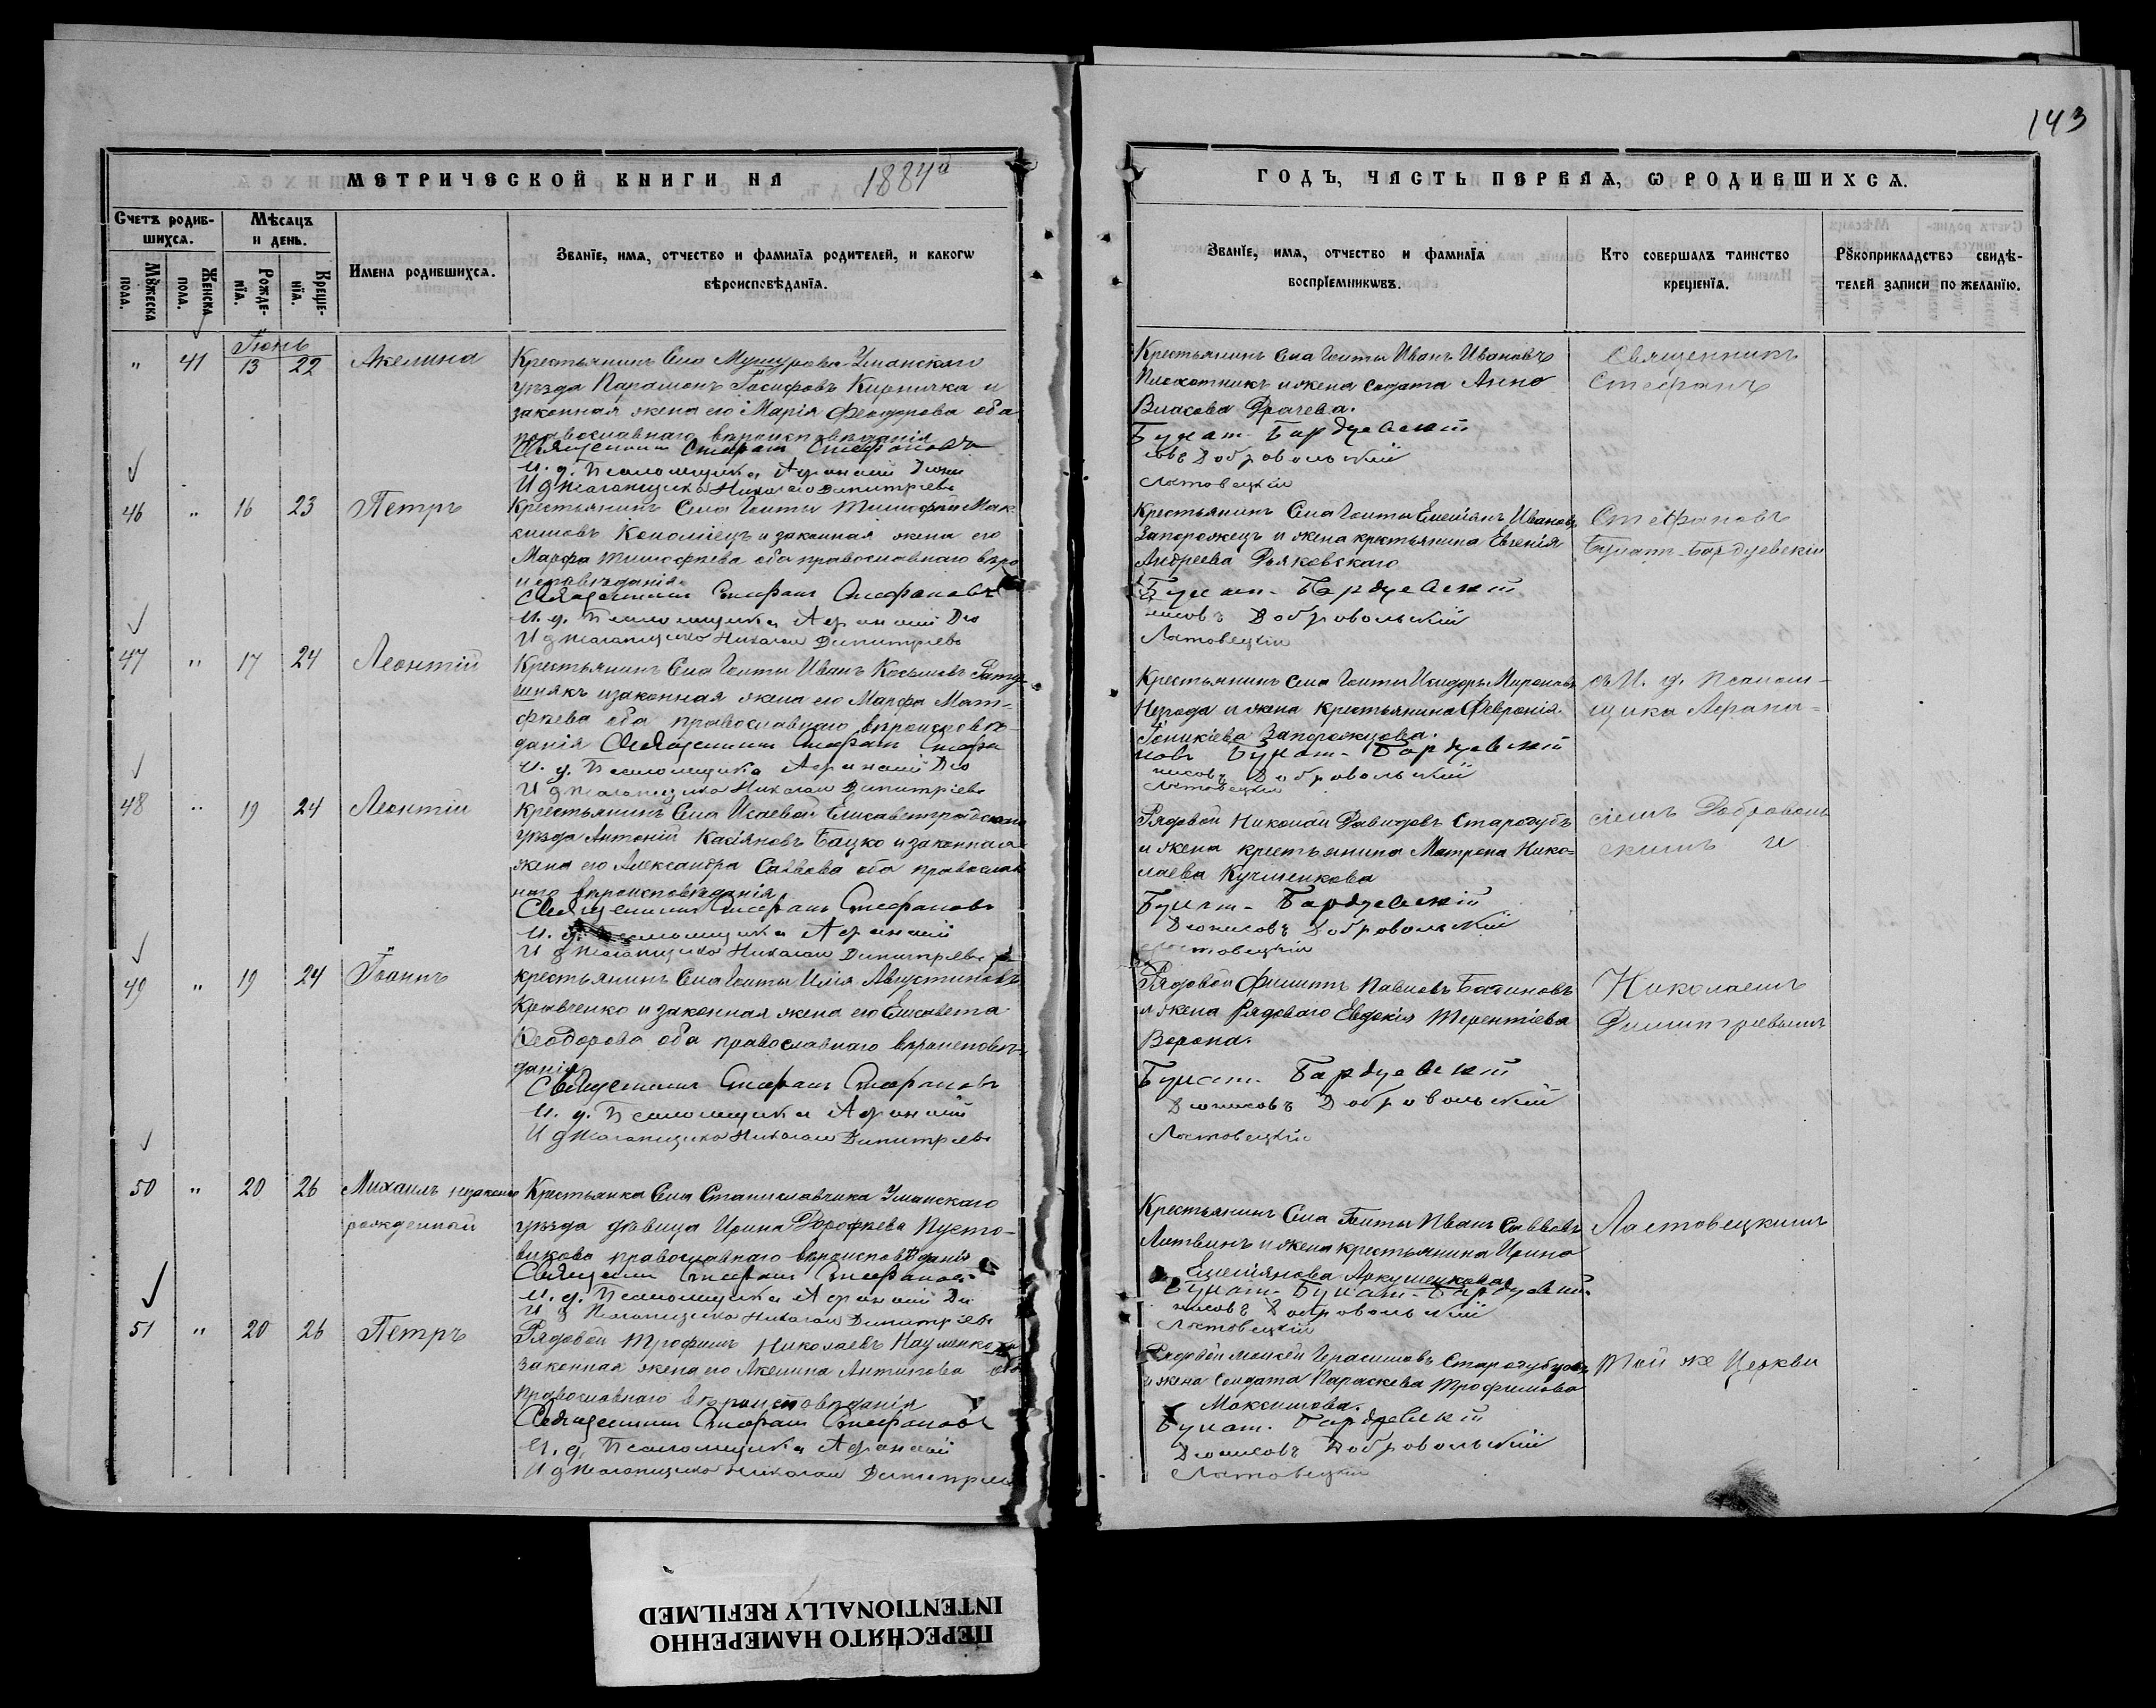 143
МЕТРИЧЕСКОЙ КНИГИ НА 1884й
ГОДЪ, ЧАСТЬ ПЕРВАЯ, Ѡ РОДИВШИХСѦ.
Счетъ родив-
шихсѧ.
Мѣсяцъ
и день.
Мꙋжеска
пола.
Женска
пола.
Рожде-
нїѧ.
Креще-
нїѧ.
Имена родившихсѧ.
Званїе, имѧ, отчество и фамилїѧ родителей, и какогѡ
вѣроисповѣданїѧ.
Званїе, имѧ, отчество и фамилїѧ
воспрїемникѡвъ.
Кто совершалъ таинство
крещенїѧ.
Рꙋкоприкладство свидѣ-
телей записи по желанїю.
Іюнь
" 41 13 22 Акелина
Крестьянинъ Села Уманскаго
уѣзда Парамонъ Іосифовъ Кирничка и
законная жена его Марія Феодорова оба
православнаго вѣроисповѣданія
Священникъ Стефанъ Стефановъ
И. д. Псаломщика Афанасій Діони
И д Псаломщика Николай Димитріевъ
Крестьянинъ Села Иванъ Ивановъ
Плохотникъ и жена солдата Анна
Власова Драчева.
Булат-Бардуевскій
совъ Добровольскій
Ластовецкій
Священникъ
Стефанъ
46 " 16 23 Петръ
Крестьянинъ Села Тимофей Мак-
симовъ Коломіецъ и законная жена его
Марфа Тимофѣева оба православнаго вѣро
исповѣданія
Священникъ Стефанъ Стефановъ
И. д. Псаломщика Афанасій Діо
И д Псаломщика Николай Димитріевъ
Крестьянинъ Села Емеліянъ Ивановъ
Запорожецъ и жена крестьянина Евгенія
Андреева Дьяковскаго
Булат-Бардуевскій
нисовъ Добровольскій
Ластовецкій
Стефановъ
Булатъ-Бардуевскій
47 " 17 24 Леонтій
Крестьянинъ Села Иванъ Косьмовъ Рату-
шнякъ и законная жена его Марфа Мат-
фѣева оба православнаго вѣроисповѣ-
данія Священникъ Стефанъ Стефа
И. д. Псаломщика Афанасій Діо
И д Псаломщика Николай Димитріевъ
Крестьянинъ Села Исидоръ Мироновъ
Негода и жена крестьянина Февронія
Іоникіева Запорожцова.
новъ Булат-Бардуевскій
нисовъ Добровольскій
Ластовецкій
съ И. д. Псалом-
щика Афана-
48 " 19 24 Леонтій
Крестьянинъ Села Исаевой Елисаветградскаго
уѣзда Антоній Касіяновъ Бацко и законная
жена его Александра Саввова оба православ
наго вѣроисповѣданія
Священникъ Стефанъ Стефановъ
И. д. Псаломщика Афанасій
И д Псаломщика Николай Димитріевъ
Рядовой Николай Давидовъ Стародубъ
и жена крестьянина Матрена Нико-
лаева Кучменкова
Булат-Бардуевскій
Діонисовъ Добровольскій
Ластовецкій
сіемъ Доброволь
скимъ и
49 " 19 24 Іоаннъ
крестьянинъ Села Илія Августиновъ
Кравченко и законная жена его Елисавета
Феодорова оба православнаго вѣроисповѣ-
данія
Священникъ Стефанъ Стефановъ
И. д. Псаломщика Афанасій
И д Псаломщика Николай Димитріевъ
Рядовой Филиппъ Павловъ
и жена Рядоваго Евдокія Терентіева
Ворона.
Булат-Бардуевскій
Діонисовъ Добровольскій
Ластовецкій
Николаемъ
Димитріевымъ
50 " 20 26 Михаилъ незаконно
рожденный
Крестьянка Села Станиславчика Уманскаго
уѣзда дѣвица Ирина Дорофѣева Пусто-
викова православнаго вѣроисповѣданія
Священникъ Стефанъ Стефановъ
И. д. Псаломщика Афанасій Діо
И д Псаломщика Николай Димитріевъ
Крестьянинъ Села Иванъ Саввовъ
Литвинъ и жена крестьянина Ирина
Емеліянова
Булат-Булат-Бардуевскій
нисовъ Добровольскій
Ластовецкій
Ластовецкимъ
51 " 20 26 Петръ
Рядовой Трофимъ Николаевъ Науменко и
законная жена его Акелина Антипова оба
православнаго вѣроисповѣданія
Священникъ Стефанъ Стефановъ
И. д. Псаломщика Афанасій
И д Псаломщика Николай Димитріевъ
Рядовой Моисей Герасимовъ Стародубцовъ
и жена солдата Параскева Трофимова
Максимова.
Булат-Бардуевскій
Діонисовъ Добровольскій
Ластовецкій
Той же Церкви
ПЕРЕСНЯТО НАМЕРЕННО
INTENTIONALLY REFILMED